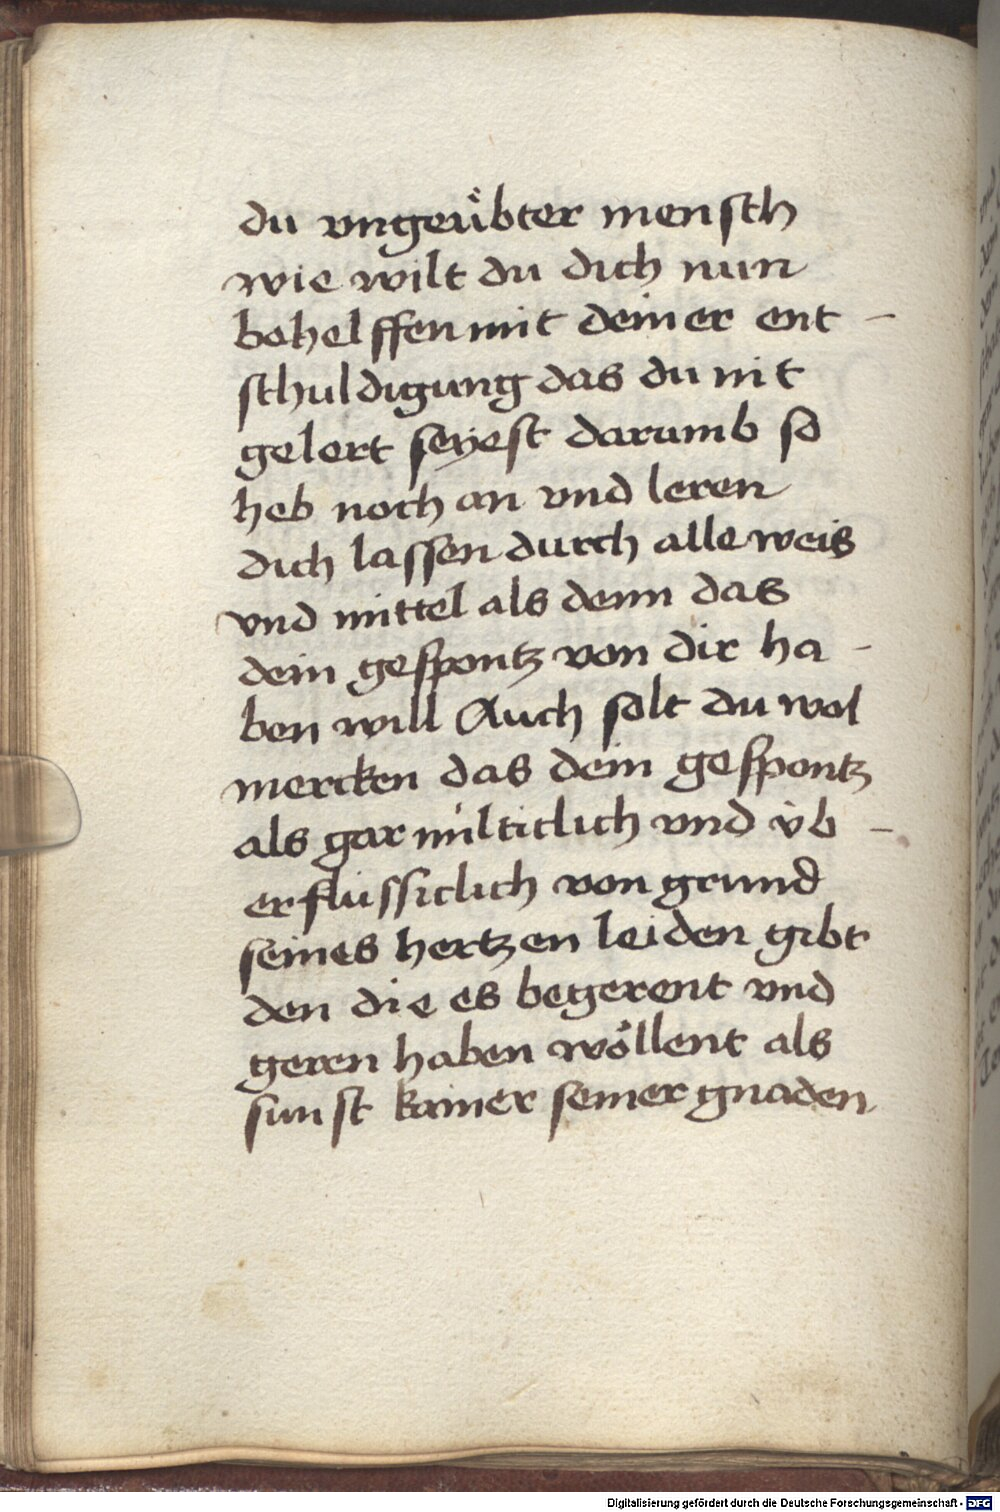 du vngeuͤbter mensch
wie wilt du dich nun
behelffen mit deiner ent –
schuldigung das du nit
gelert seyest darumb so
heb noch an vnd leren
dich lassen durch alle weis
vnd mittel als denn das
dein gespontz von dir ha –
ben will Auch solt du wol
mercken das dein gespontz
als gar milticlich vnd vb –
erflussiclich von grund
seines hertzen leiden gibt
den die es begerent vnd
geren haben wöllent als
sunst kainer seiner gnaden
Digitalisierung gefördert durch die Deutsche Forschungsgemeinschaft - DFG